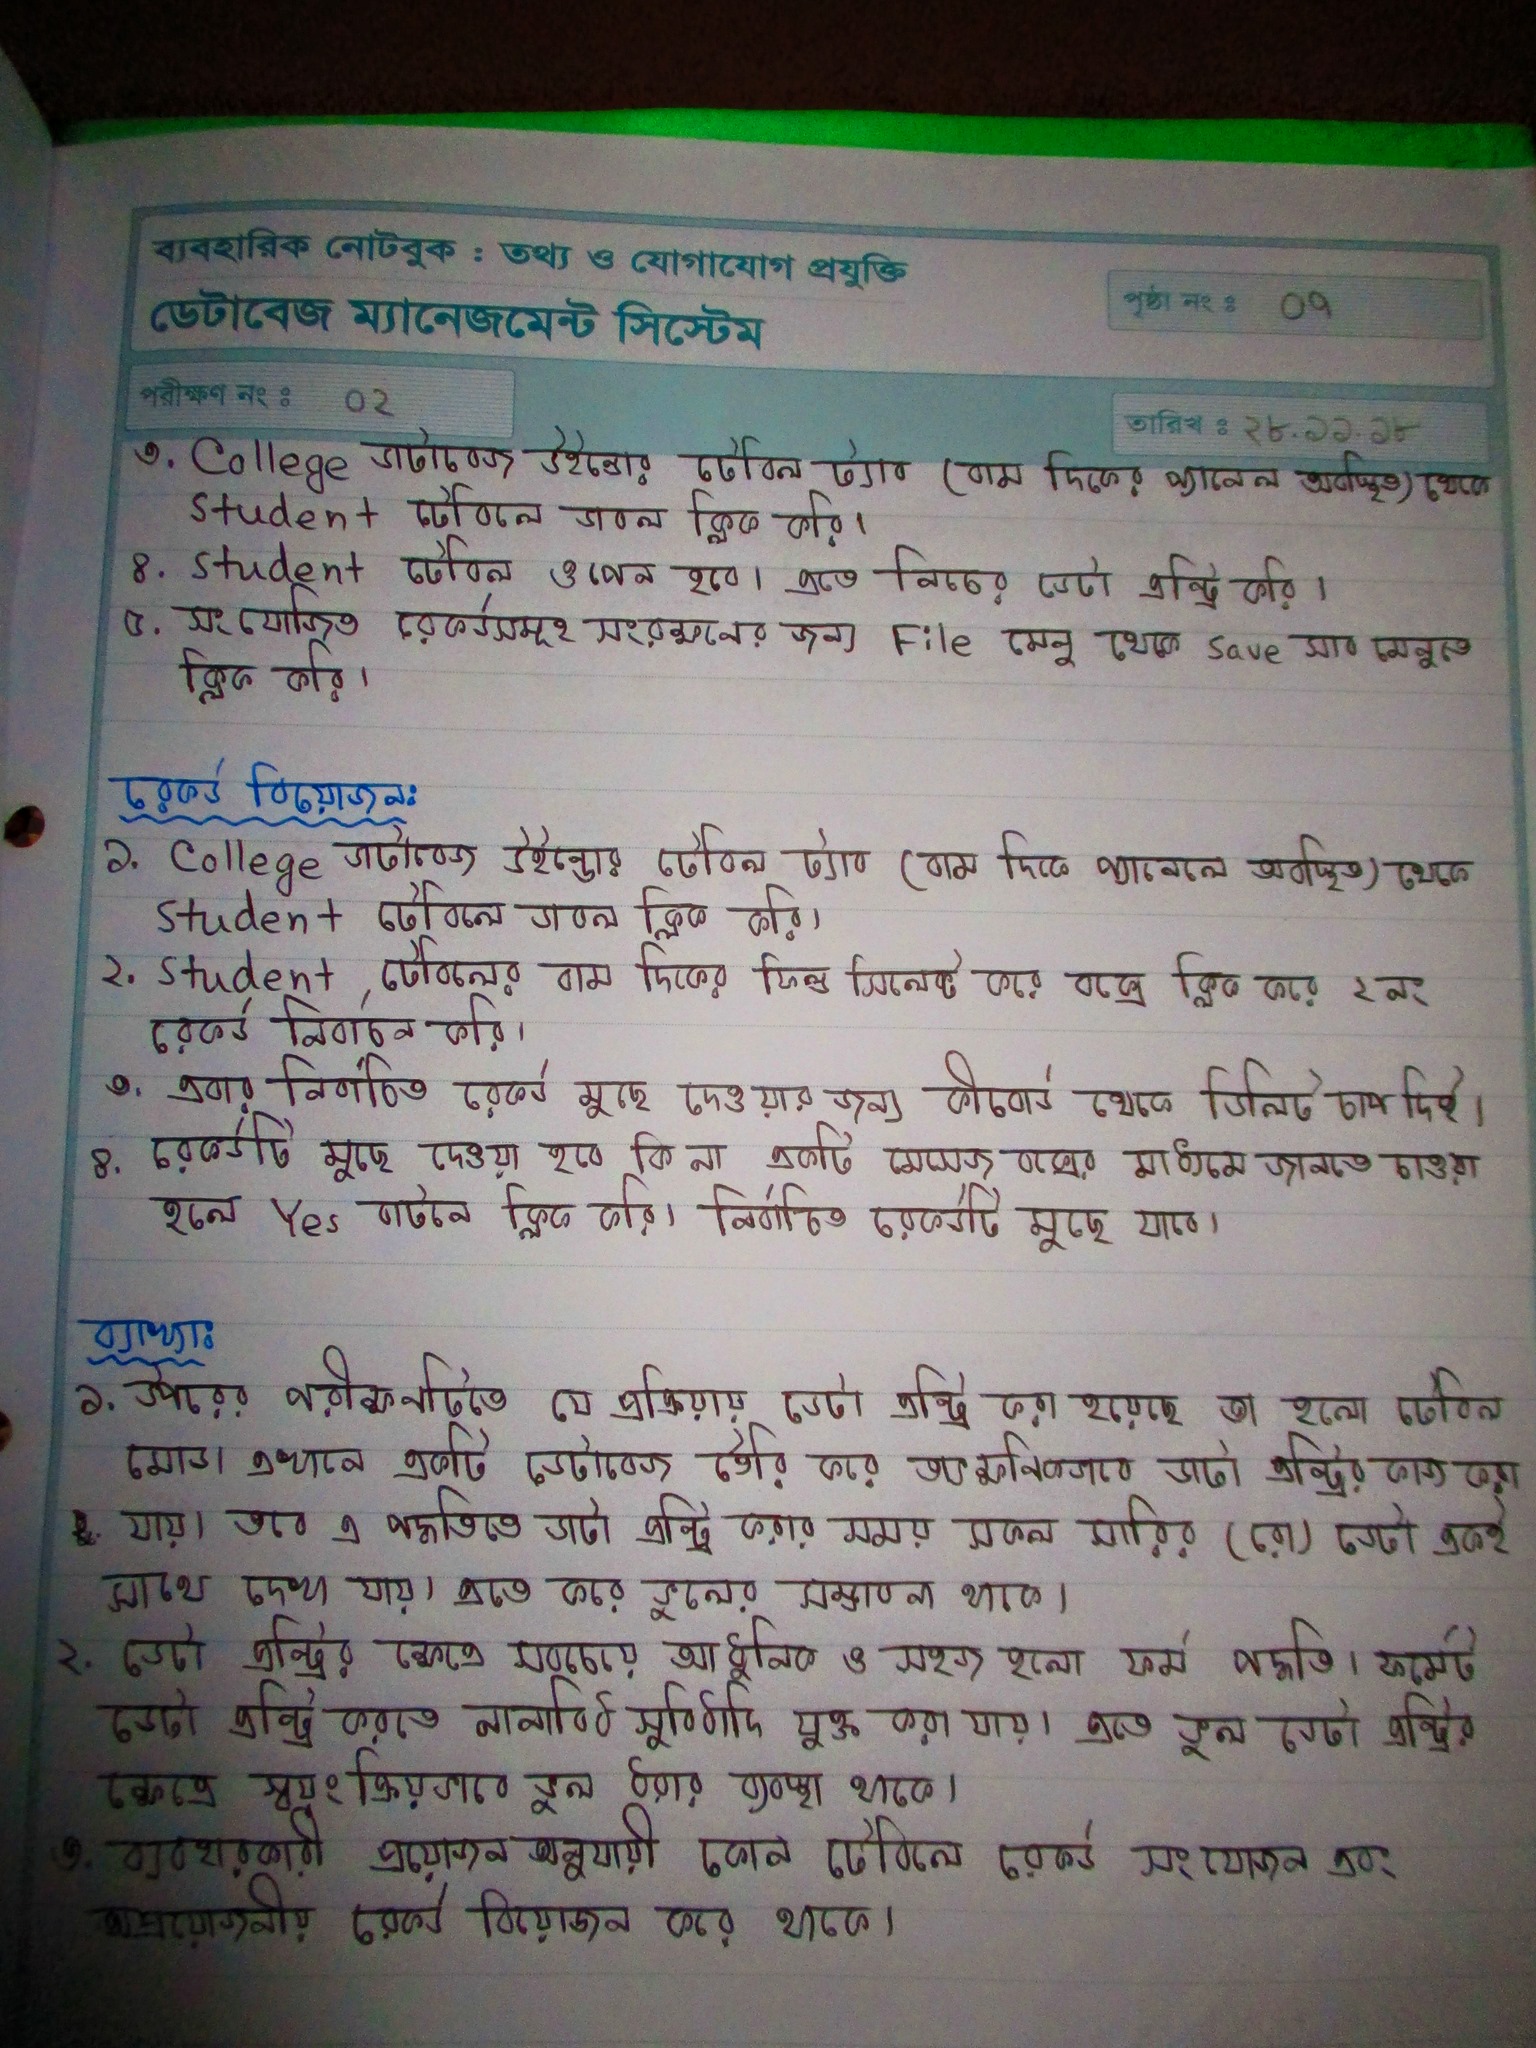 ব্যবহারিক নোটবুক : তথ্য ও যোগাযোগ প্রযুক্তি
ডেটাবেজ ম্যানেজমেন্ট সিস্টেম
পৃষ্ঠা নং : ০৭
পরীক্ষণ নং : ০২
তারিখ : ২৮.১১.১৮
৩. College ডাটাবেজ উইন্ডোর টেবিল ট্যাব (বাম দিকের প্যানেল অবস্থিত) থেকে
Student টেবিলে ডাবল ক্লিক করি।
৪. Student টেবিল ওপেন হবে। এতে নিচের ডেটা এন্ট্রি করি।
৫. সংযোজিত রেকর্ডসমূহ সংরক্ষনের জন্য File মেনু থেকে Save সাব মেনুতে
ক্লিক করি।
রেকর্ড বিয়োজনঃ
১. College ডাটাবেজ উইন্ডোর টেবিল ট্যাব (বাম দিকে প্যানেলে অবস্থিত) থেকে
Student টেবিলে ডাবল ক্লিক করি।
২. Student টেবিলের বাম দিকের ফিল্ড সিলেক্ট করে বক্সে ক্লিক করে ২নং
রেকর্ড নির্বাচন করি।
৩. এবার নির্বাচিত রেকর্ড মুছে দেওয়ার জন্য কীবোর্ড থেকে ডিলিট চাপ দিই।
৪. রেকর্ডটি মুছে দেওয়া হবে কি না একটি মেসেজ বক্সের মাধ্যমে জানতে চাওয়া
হলে Yes বাটনে ক্লিক করি। নির্বাচিত রেকর্ডটি মুছে যাবে।
ব্যাখ্যাঃ
১. উপরের পরীক্ষনটিতে যে প্রক্রিয়ায় ডেটা এন্ট্রি করা হয়েছে তা হলো টেবিল
মোড। এখানে একটি ডেটাবেজ তৈরি করে তাৎক্ষনিকভাবে ডাটা এন্ট্রির কাজ করা
যায়। তবে এ পদ্ধতিতে ডাটা এন্ট্রি করার সময় সকল সারির (রো) ডেটা একই
সাথে দেখা যায়। এতে করে ভুলের সম্ভাবনা থাকে।
২. ডেটা এন্ট্রির ক্ষেত্রে সবচেয়ে আধুনিক ও সহজ হলো ফর্ম পদ্ধতি। ফর্মেট
ডেটা এন্ট্রি করতে নানাবিধ সুবিধাদি যুক্ত করা যায়। এতে ভুল ডেটা এন্ট্রির
ক্ষেত্রে স্বয়ংক্রিয়ভাবে ভুল ধরার ব্যবস্থা থাকে।
৩. ব্যবহারকারী প্রয়োজন অনুযায়ী কোন টেবিলে রেকর্ড সংযোজন এবং
অপ্রয়োজনীয় রেকর্ড বিয়োজন করে থাকে।